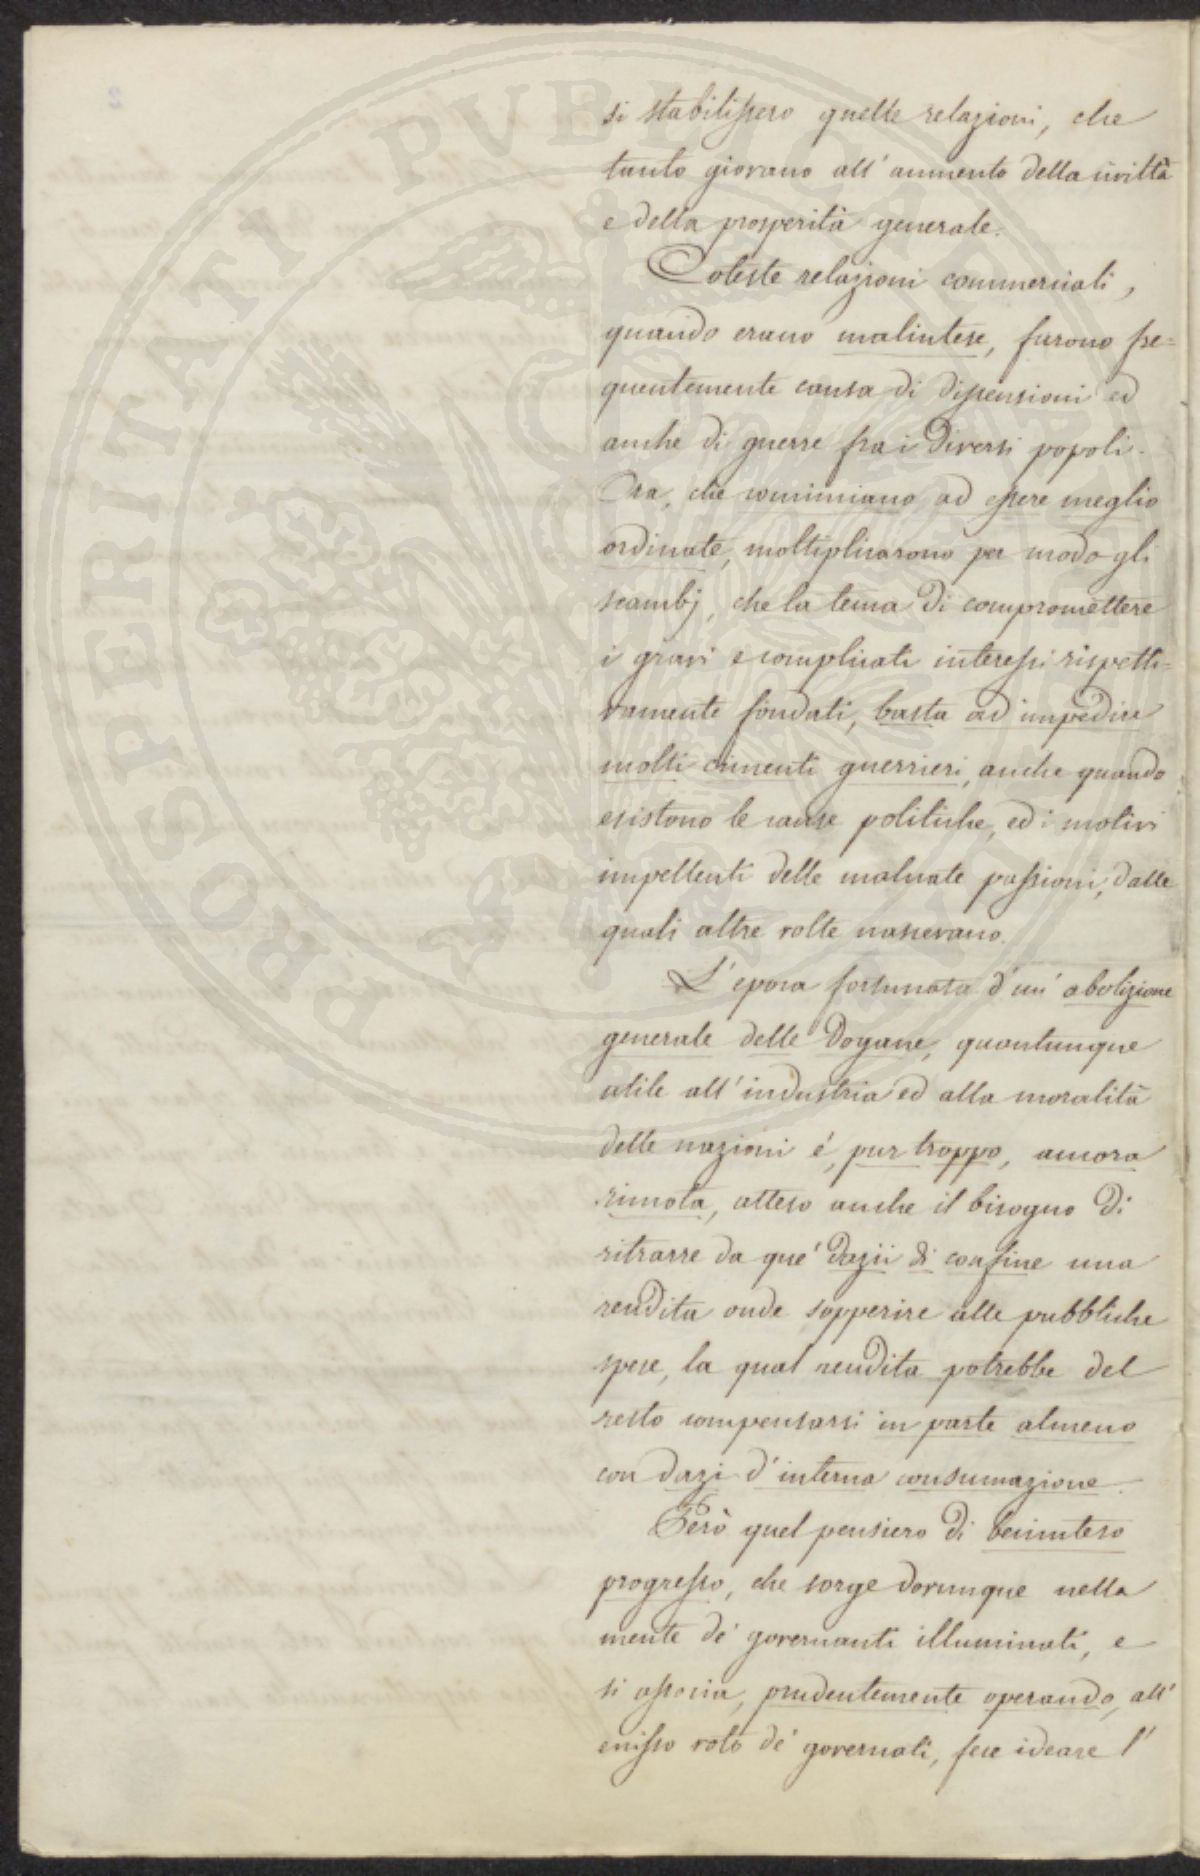 si stabilissero quelle relazioni, che
tanto giovano all' aumento della civiltà
e della prosperità generale.
Coteste relazioni commerciali,
quando erano malintese, furono fre=
quentemente causa di dissensioni ed
anche di guerre fra i diversi popoli.
Ora, che cominciano ad essere meglio
ordinate, moltiplicarono per modo gli
scambj, che la tema di compromettere
i gravi e complicati interessi rispetti=
vamente fondati, basta ad impedire
molti cimenti guerrieri, anche quando
esistono le cause politiche, ed i motivi
impellenti delle malnate passioni, dalle
quali altre volte nascevano.
L' epoca fortunata d' un' abolizione
generale delle Dogane, quantunque
utile all' industria ed alla moralità
delle nazioni é, pur troppo, ancora
rimota, atteso anche il bisogno di
ritrarre da que' dazii di confine una
rendita onde sopperire alle pubbliche
spese, la qual rendita potrebbe del
resto compensarsi in parte almeno
con dazi d' interna consumazione.
Però quel pensiero di beninteso
progresso, che sorge dovunque nella
mente de' governanti illuminati, e
si associa, prudentemente operando, all'
emisso voto de' governati, fece ideare l'
PROSPERITATI PVBLICAE
2